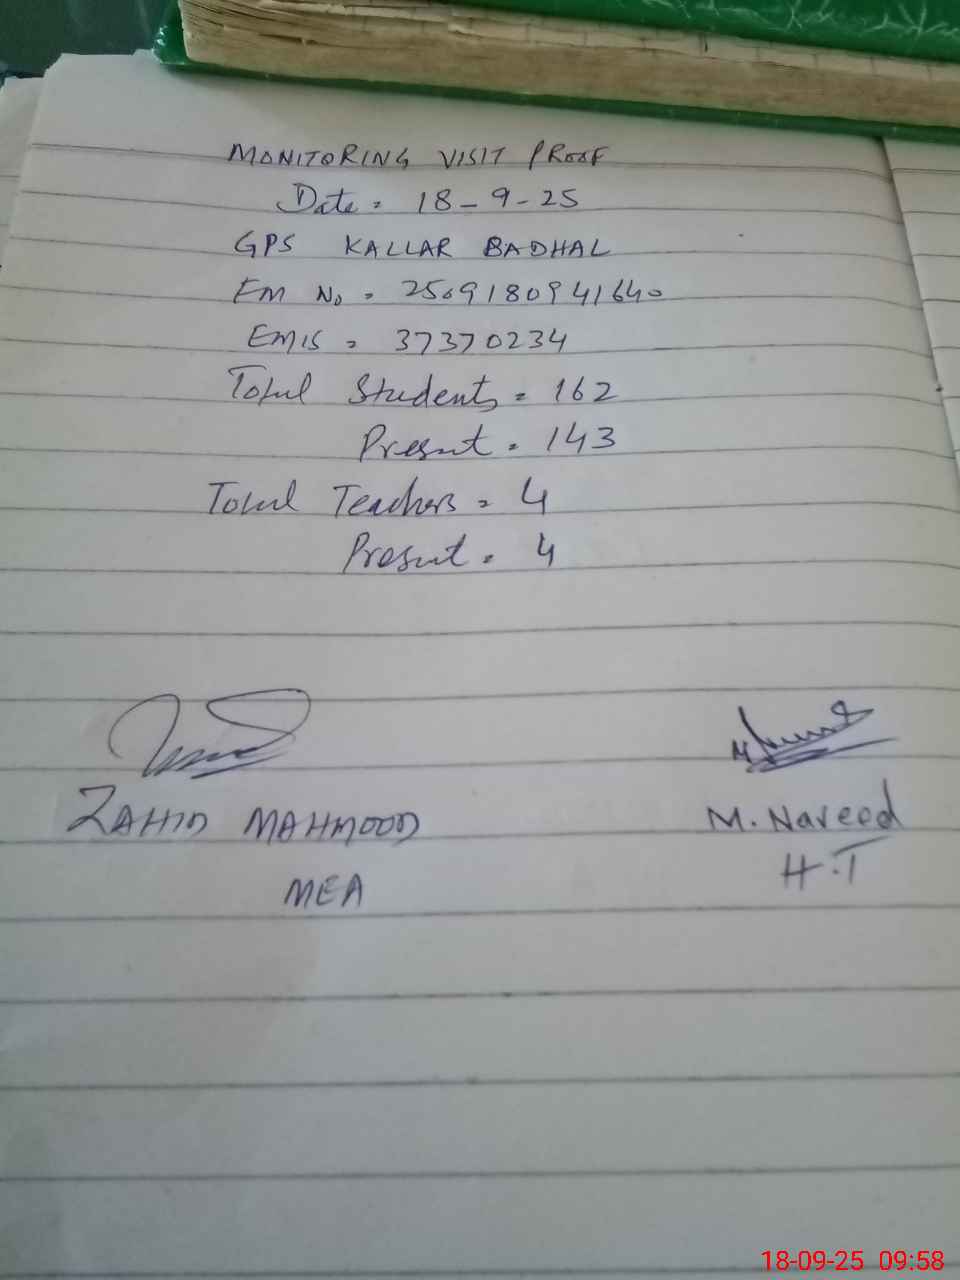 MONITORING VISIT PROOF
Date = 18-9-25
GPS KALLAR BADHAL
EM No = 2509180941640
EMIS = 37370234
Total Students = 162
Present = 143
Total Teachers = 4
Present = 4
ZAHID MAHMOOD
MEA
M. Naveed
H.T
18-09-25 09:58